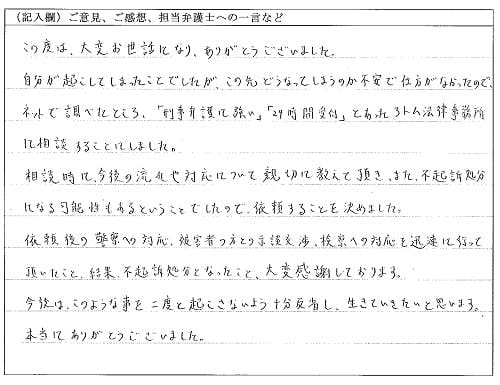 (記入欄)ご意見、ご感想、担当弁護士への一言など
この度は、大変お世話になり、ありがとうございました。
自分が起こしてしまったことでしたが、この先どうなってしまうのか不安で仕方がなかったので、
ネットで調べたところ、「刑事弁護に強い」「24時間受付」とあったアトム法律事務所
に相談することにしました。
相談時に、今後の流れや対応について親切に教えて頂き、また、不起訴処分
になる可能性もあるということでしたので、依頼することを決めました。
依頼後の警察への対応、被害者の方との示談交渉、検察への対応を迅速に行って
頂いたこと、結果、不起訴処分となったこと、大変感謝しております。
今後は、このような事を二度と起こさないよう十分反省し、生きていきたいと思います。
本当にありがとうございました。